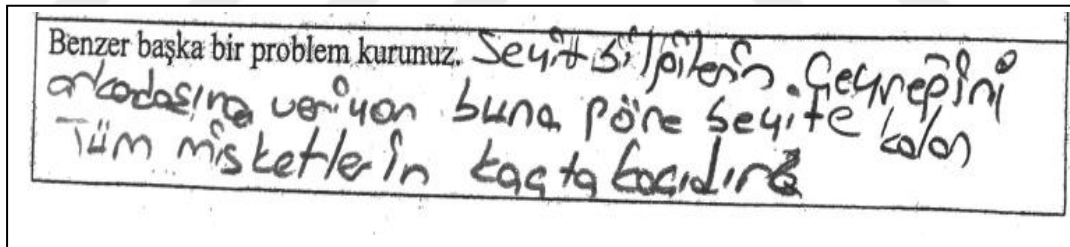 Benzer başka bir problem kurunuz. Seyit bilyilerin Çeyreğini
arkadaşına veriyor buna göre Seyite kalan
Tüm misketlerin kaçta kaçıdır?